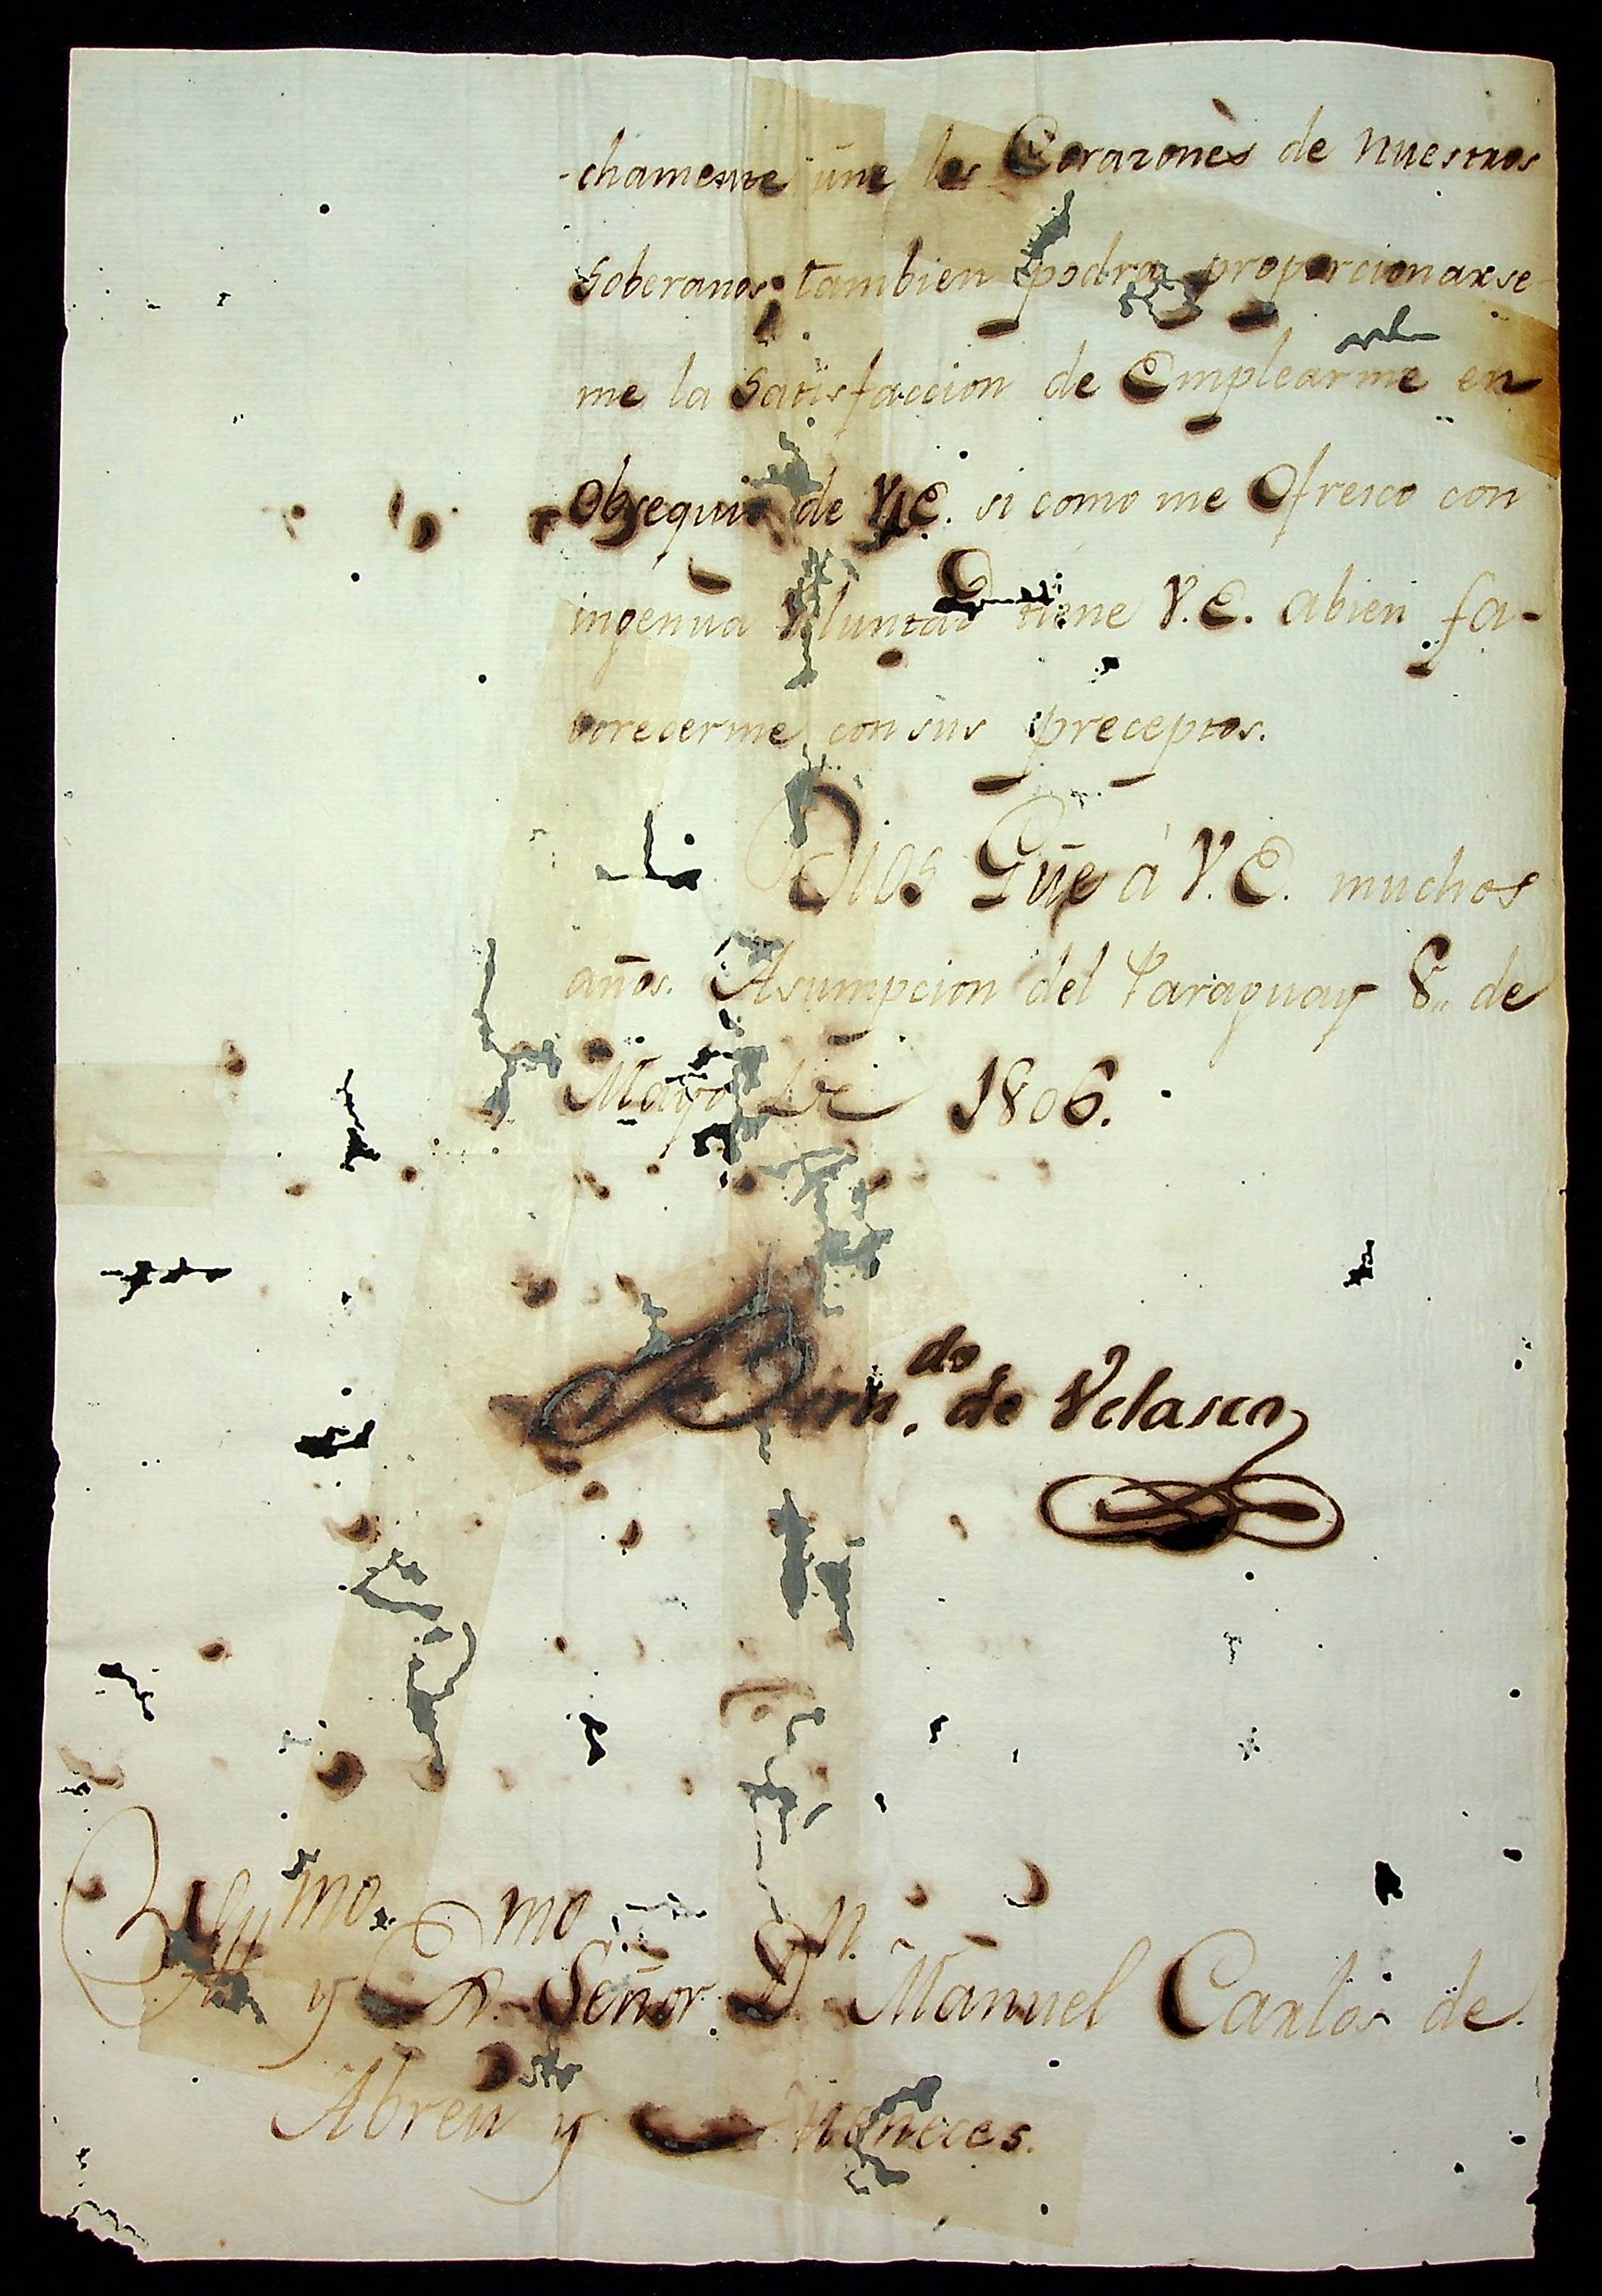 -chamente úne los Corazonès de nuestros
Soberanos, tambien podra proporcionarse
me la Satisfaccion de Emplearme en
Obsequio de V.E. si como me Ofresco con
ingenua Voluntad tiene V.E. abien fa-
vorecerme con sus preceptos.
Dios Güe à V.E. muchos
años. Asumpcion del Paraguay 8,, de
Mayo de 1806.
Bern.do de Velasco
y Exmo. Señor Dn. Manuel Carlos de
Abreu y Meneces.